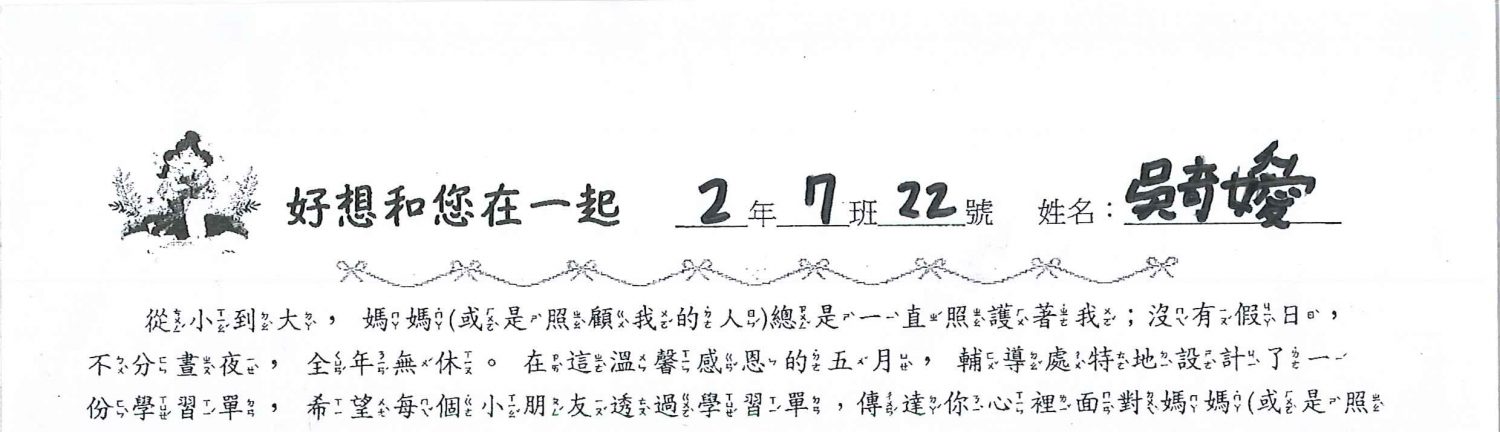 好想和您在一起 2年7班22號 姓名：吳奇嬡
從小到大，媽媽(或是照顧我的人)總是一直照護著我；沒有假日，
不分晝夜，全年無休。在這溫馨感恩的五月，輔導處特地設計了一
份學習單，希望每個小朋友透過學習單，傳達你心裡面對媽媽(或是照